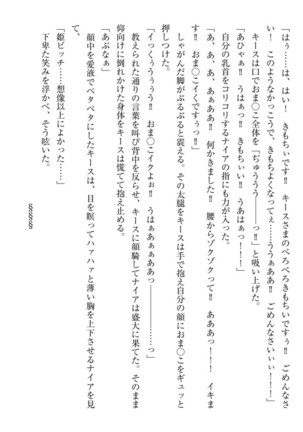 「はぅ……、は、はい！　きもちぃです‼　キースさまのぺろぺろきもちぃです‼　ごめんなさい！　このようなかっこうで、きもちよくなってぇ……ううぁああ‼　ごめんなさいぃぃ！！」
　キースは口でおま〇こ全体を「ぢゅううう――っ‼」と吸い上げた。
「あひゃぁ‼　うはぁっ‼　きもちぃぃ‼　うあはぁっ！！」
　自分の乳首をコリコリするナイアの指にも力が入った。
「あ、あ、あ、あぁぁあ‼　何かきました‼　腰からゾクゾクって‼　あああっ！！！　イキます‼　おま〇こイクですぅっ‼」
　しゃがんだ脚がぷるぷると震える。その太腿をキースは手で抱え自分の顔におま〇こをギュッと押しつけた。
「イっくぅうぅぅう‼　おま〇こイクよぉ‼　うはぁあぁぁああっ――――……っ」
　教えられた通りの言葉を叫び背中を反らせ、キースに顔騎してナイアは盛大に果てた。そのまま仰向けに倒れかけた身体をキースは慌てて抱え止める。
「あぶなぁ」
　顔中を愛液でベタベタにしたキースは、目を瞑ってハァハァと薄い胸を上下させるナイアを見下卑た笑みを浮かべ、そう呟いた。
「姫ビッチ……想像以上によかった……」
§§§§